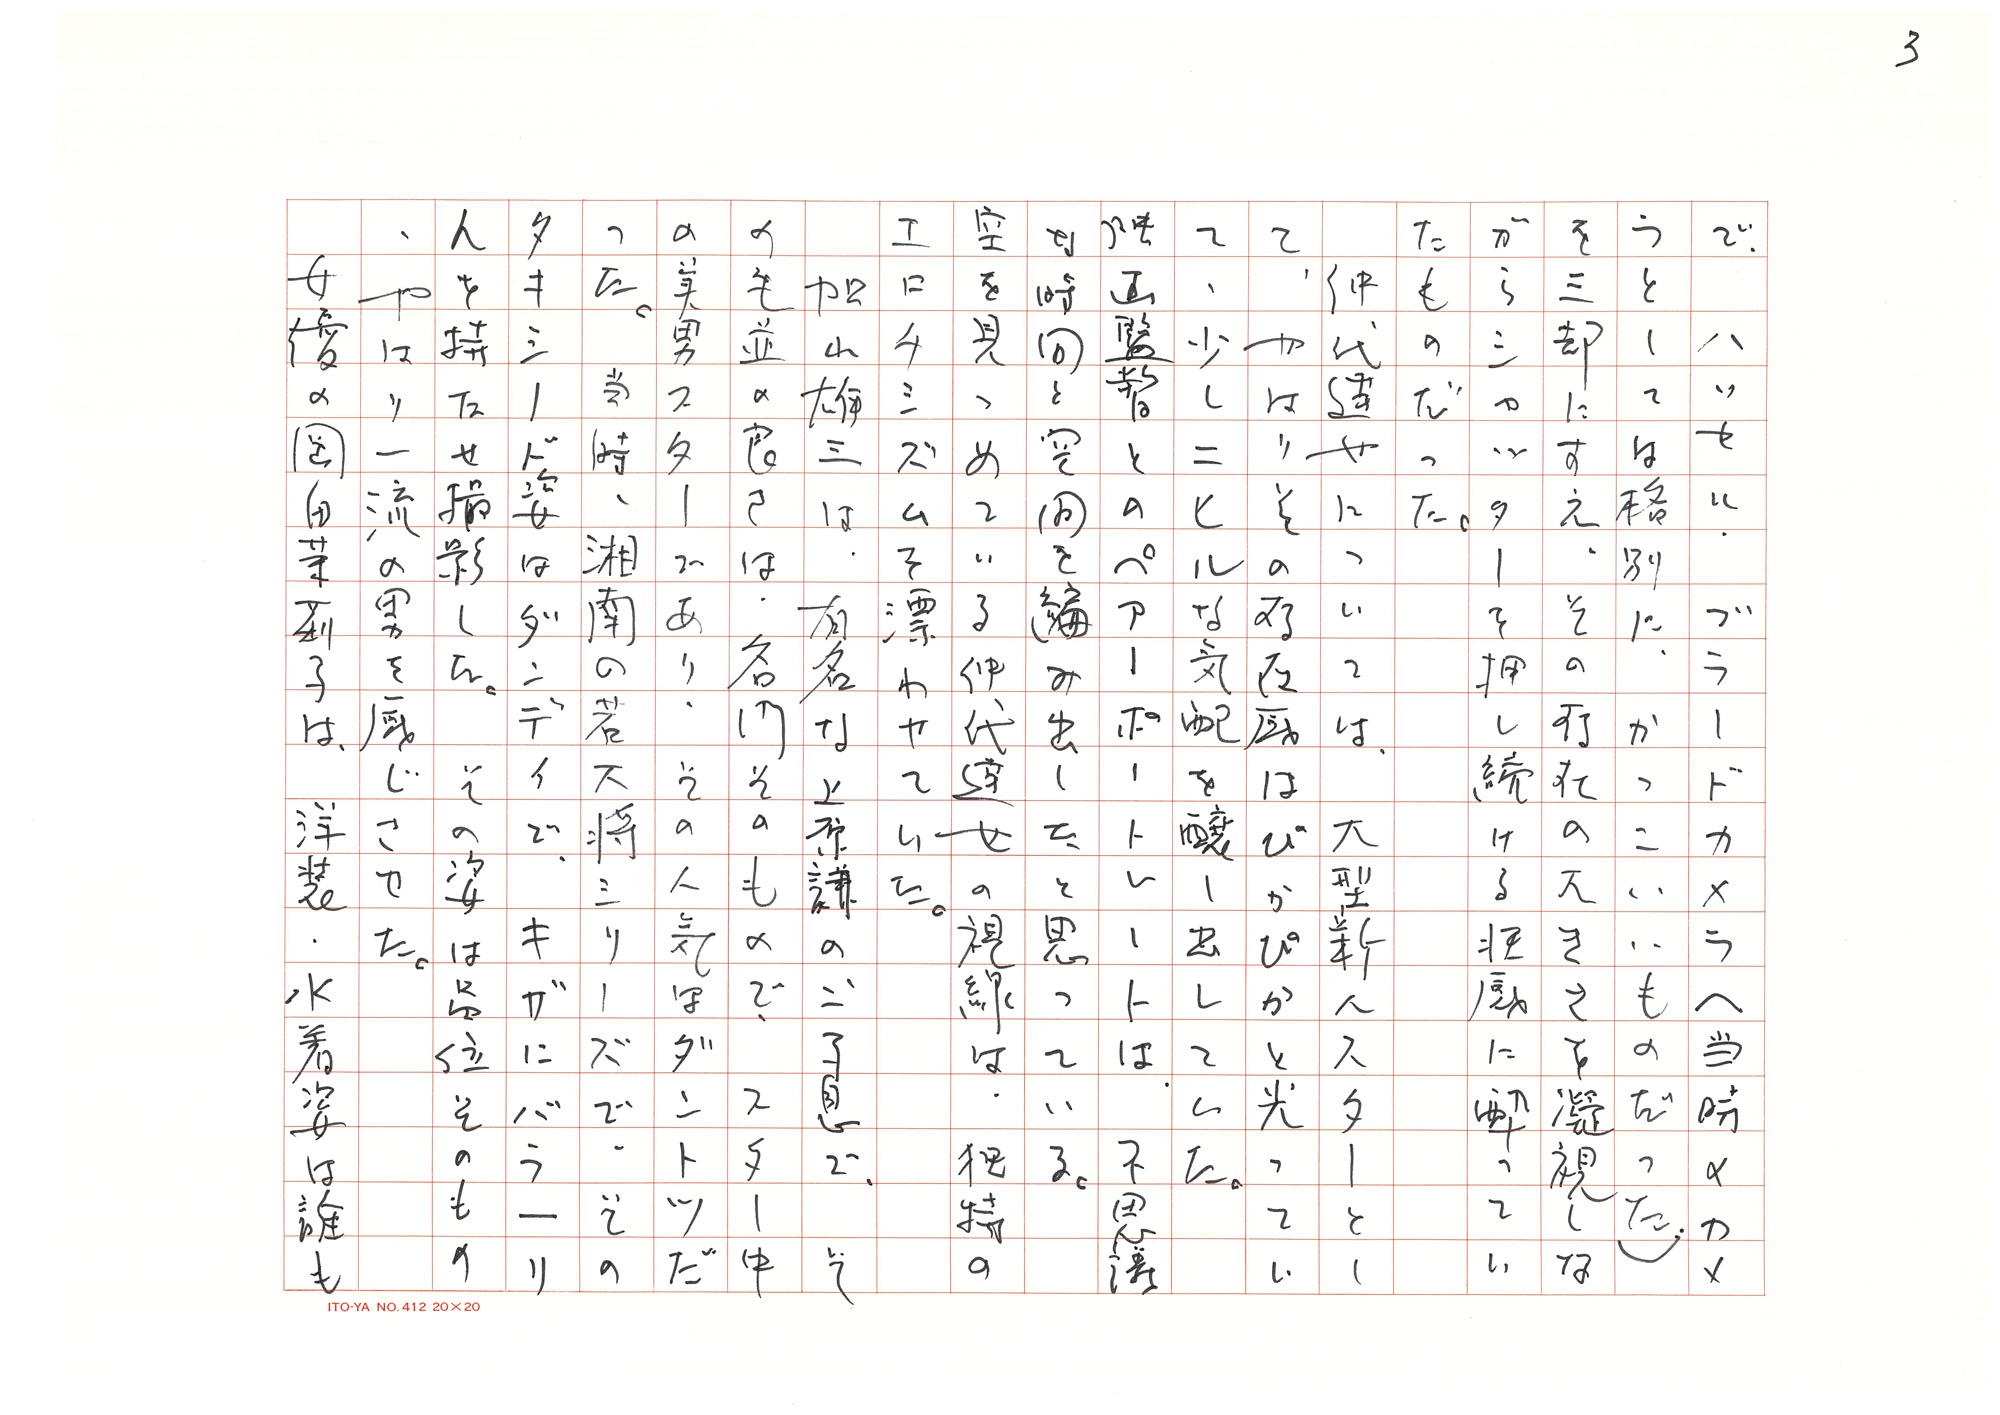 3
で、ハッセル・ブラードカメラへ当時メカメ
ラとしては格別に、かっこいいものだった。
を三却にすえ、その存在の大きさを凝視しな
がらシャッターを押し続ける快感に酔ってい
たものだった。
仲代達也については、大型新人スターとし
て、やはりその存在感はぴかぴかと光ってい
て、少しニヒルな気配を醸し出していた。
映画監督とのペアーポートレートは、不思議
な時間と空間を編み出したと思っている。
空を見つめている仲代達也の視線は、独特の
エロチシズムを漂わせていた。
加山雄三は、有名な上原謙のご子息で、そ
の毛並の良さは、名門そのもので、スター中
の美男スターであり、その人気はダントツだ
った。当時、湘南の若大将シリーズで、その
タキシード姿はダンディで、キザにバラ一リ
んを持たせ撮影した。その姿は品位そのもの
、やはり一流の男を感じさせた。
女優の岡田茉莉子は、洋装・水着姿は誰も
ITO-YA NO.412 20×20